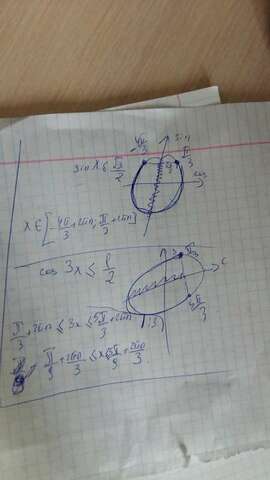 sin
-4π/3
π/3
sin x ≤ √3/2
cos
x ∈ [-4π/3 + 2πn; π/3 + 2πn]
cos 3x ≤ 1/2
π/3
5π/3
π/3 + 2πn ≤ 3x ≤ 5π/3 + 2πn
π/9 + 2πn/3 ≤ x ≤ 5π/9 + 2πn/3